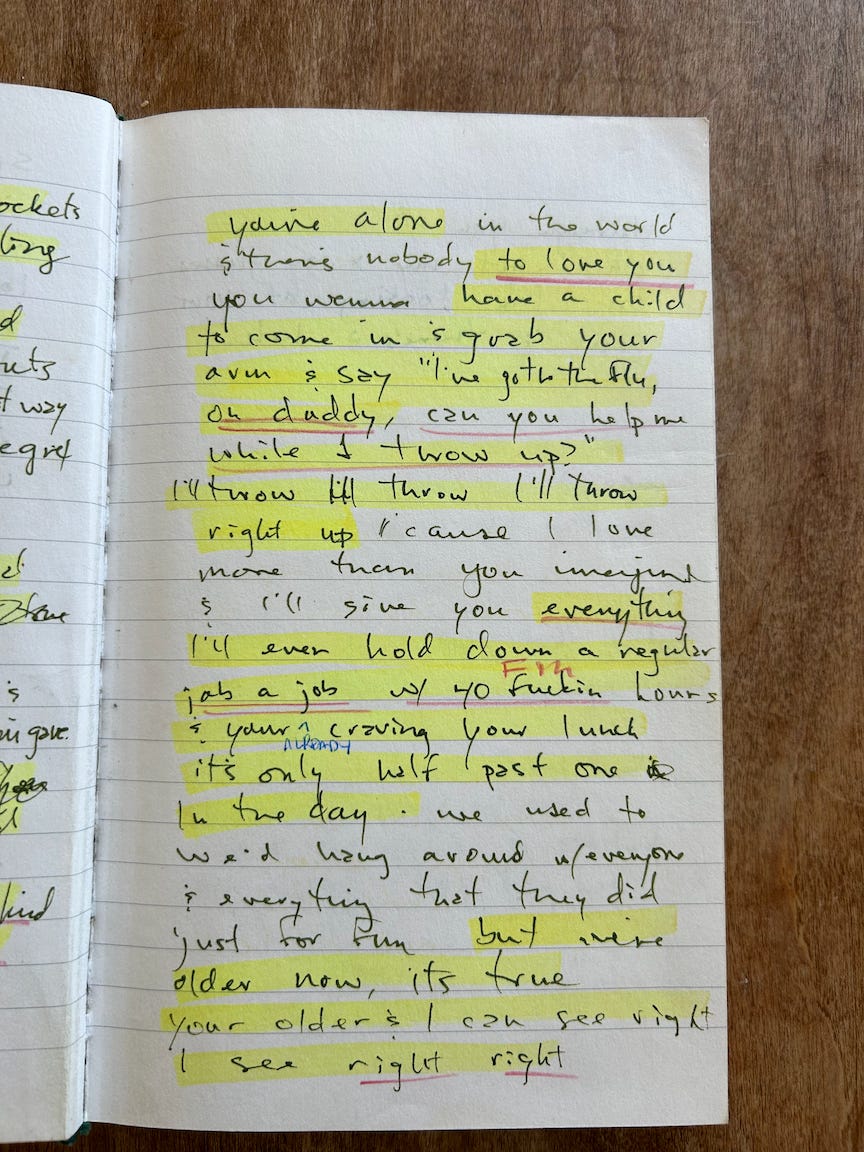 ockets
you're alone in the world
& there's nobody to love you
you wanna have a child
to come in & grab your
arm & say "I've got the flu,
oh daddy, can you help me
while I throw up?"
I'll throw I'll throw I'll throw
right up "cause I love
more than you imagined
& I'll give you everything
I'll even hold down a regular
job a job w/ 40 fuckin hours
& your craving your lunch
ALREADY
it's only half past one
In the day. we used to
we'd hang around w/everyone
& everything that they did
just for fun but we're
older now, its true
your older & I can see right
I see right right
uts
t way
egret
's
gave
kind